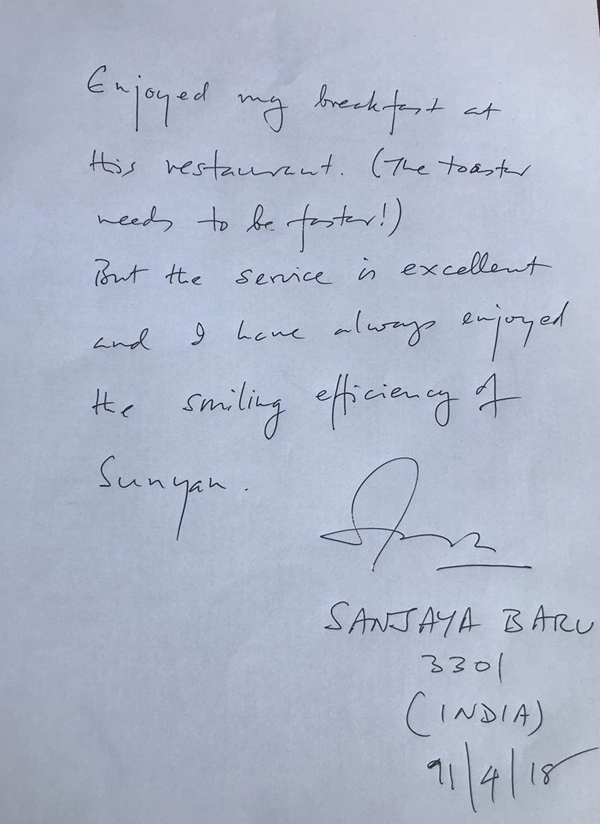 Enjoyed my breakfast at
this restaurant. (The toaster
needs to be faster!)
But the service is excellent
and I have always enjoyed
the smiling efficiency of
Sunyan.
SANJAYA BARU
3301
(INDIA)
/4/18